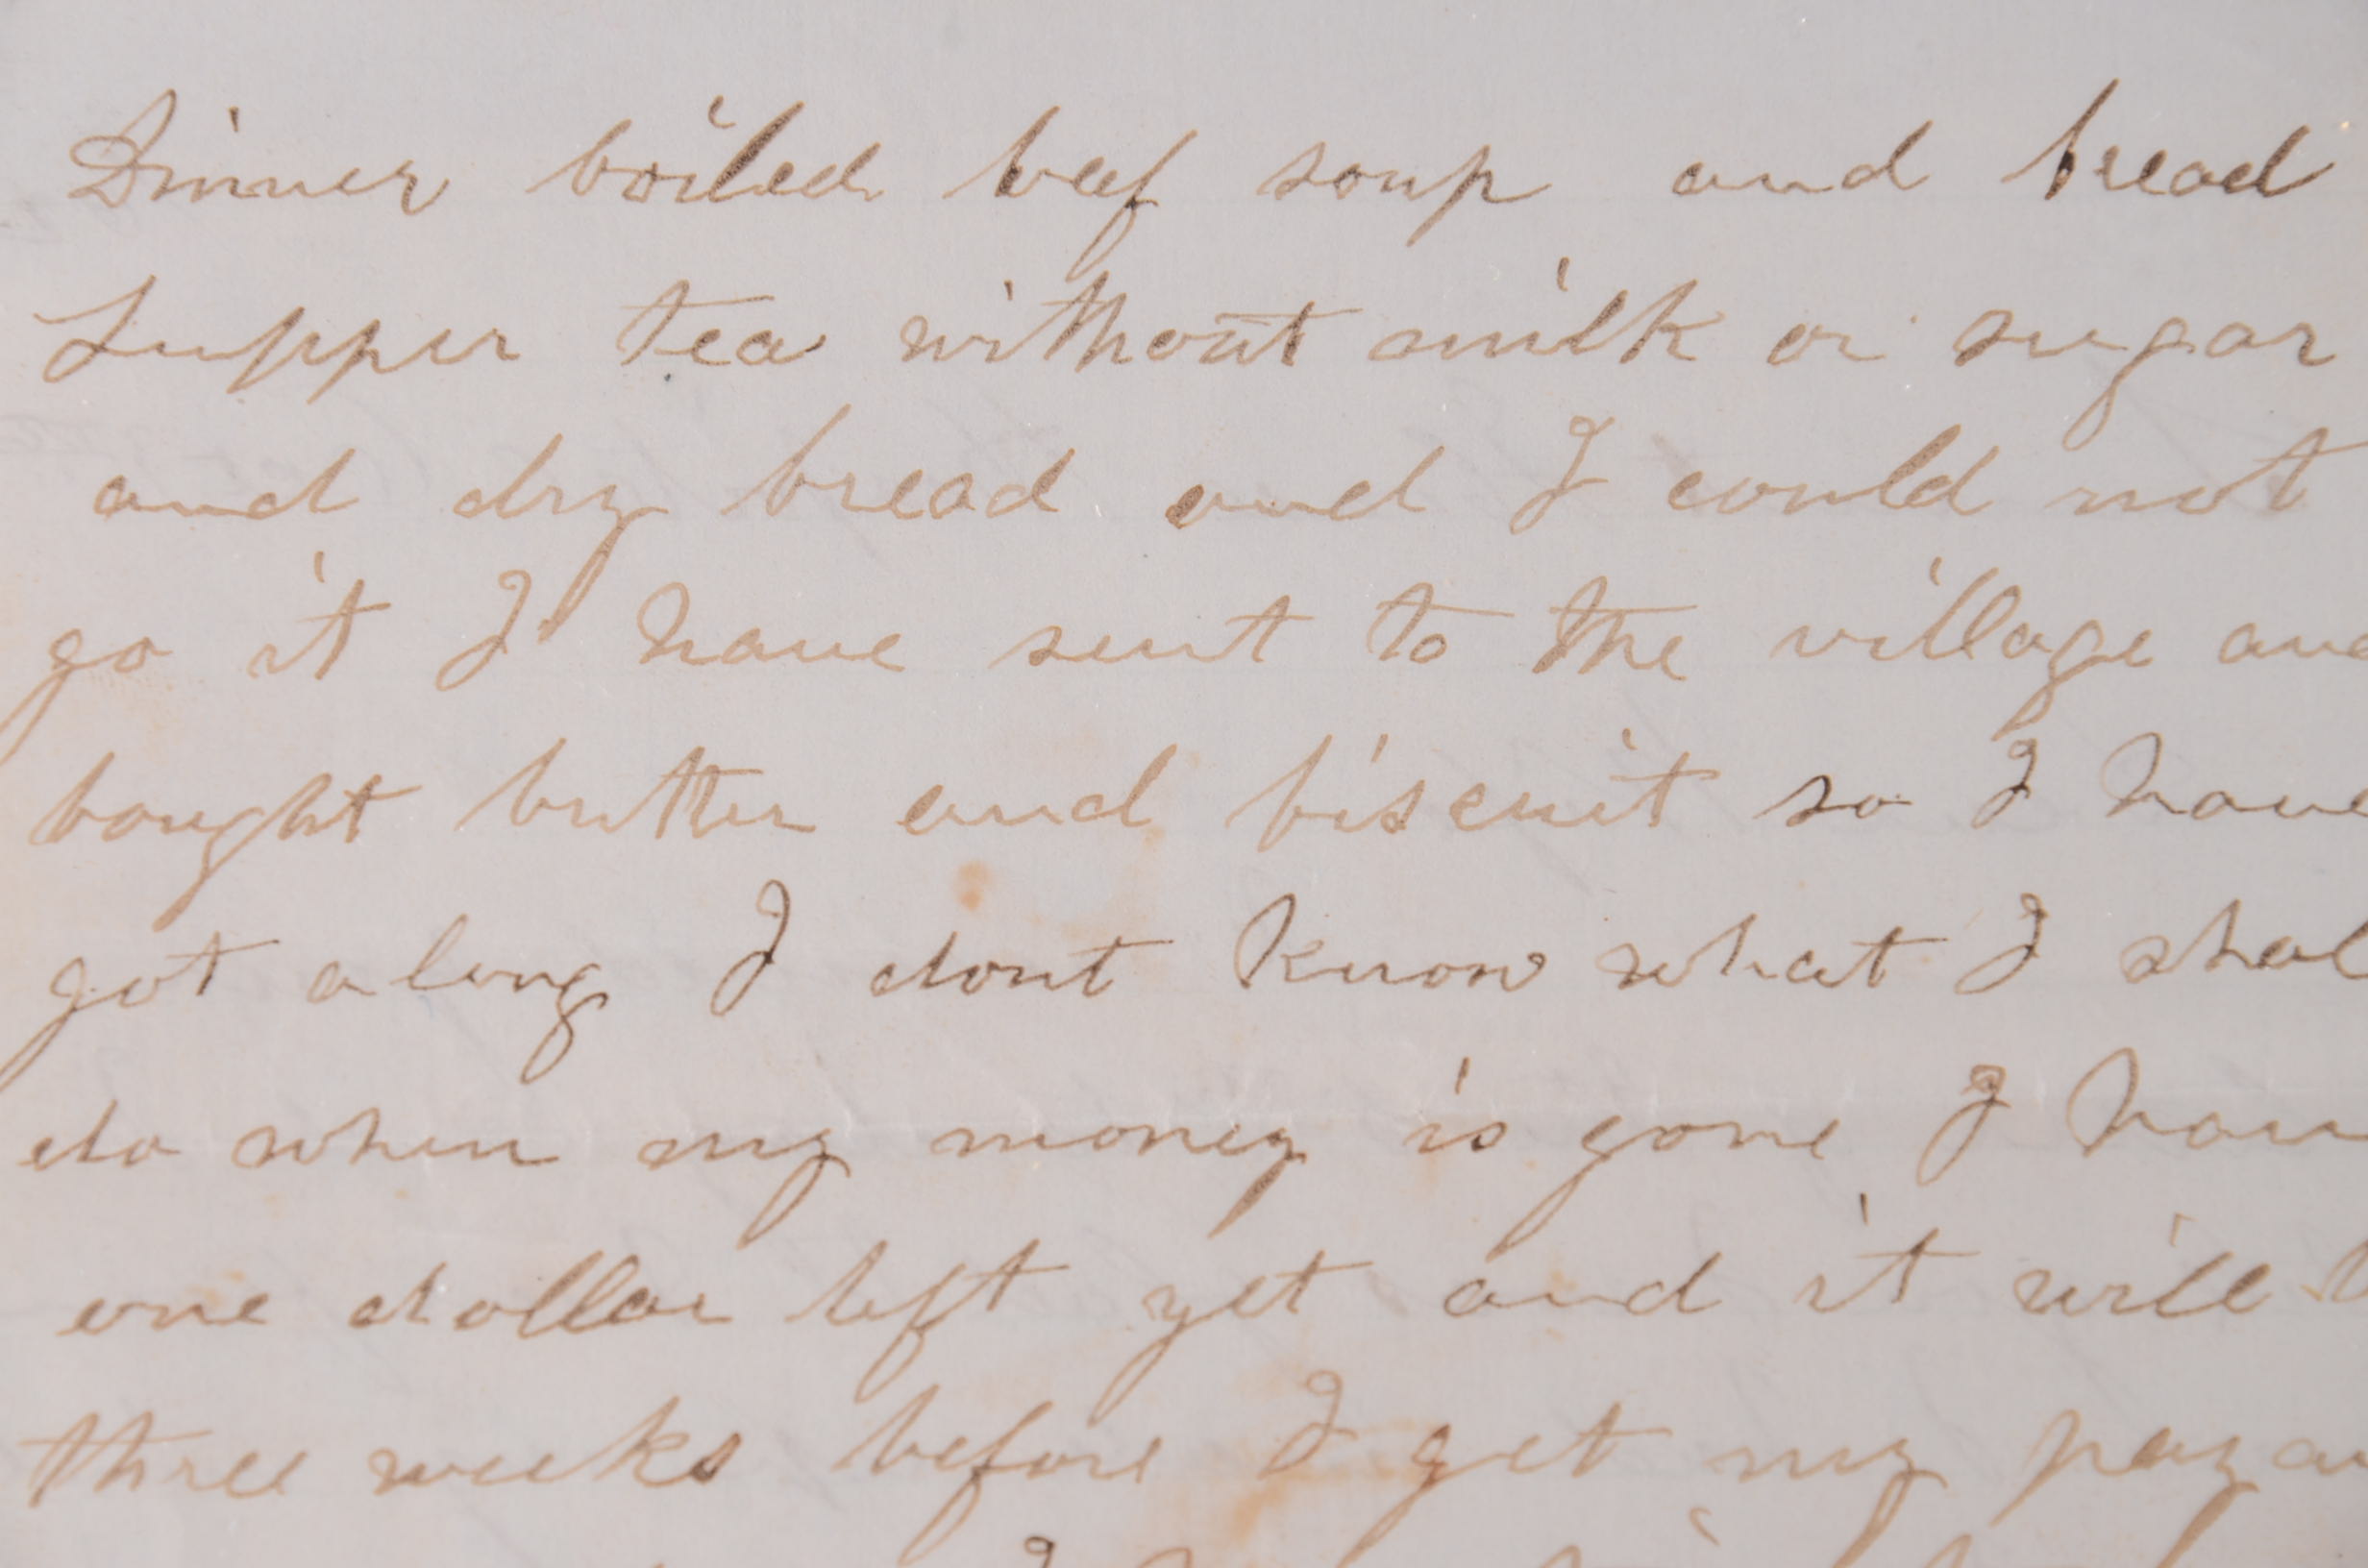 Dinner boiled beef soup and bread
Supper tea without milk or sugar
and dry bread and I could not
go it I have sent to the village and
bought butter and biscuit so I have
got along I dont know what I shal
do when my money is gone I have
one dollar left yet and it will
three weeks before I get my pay